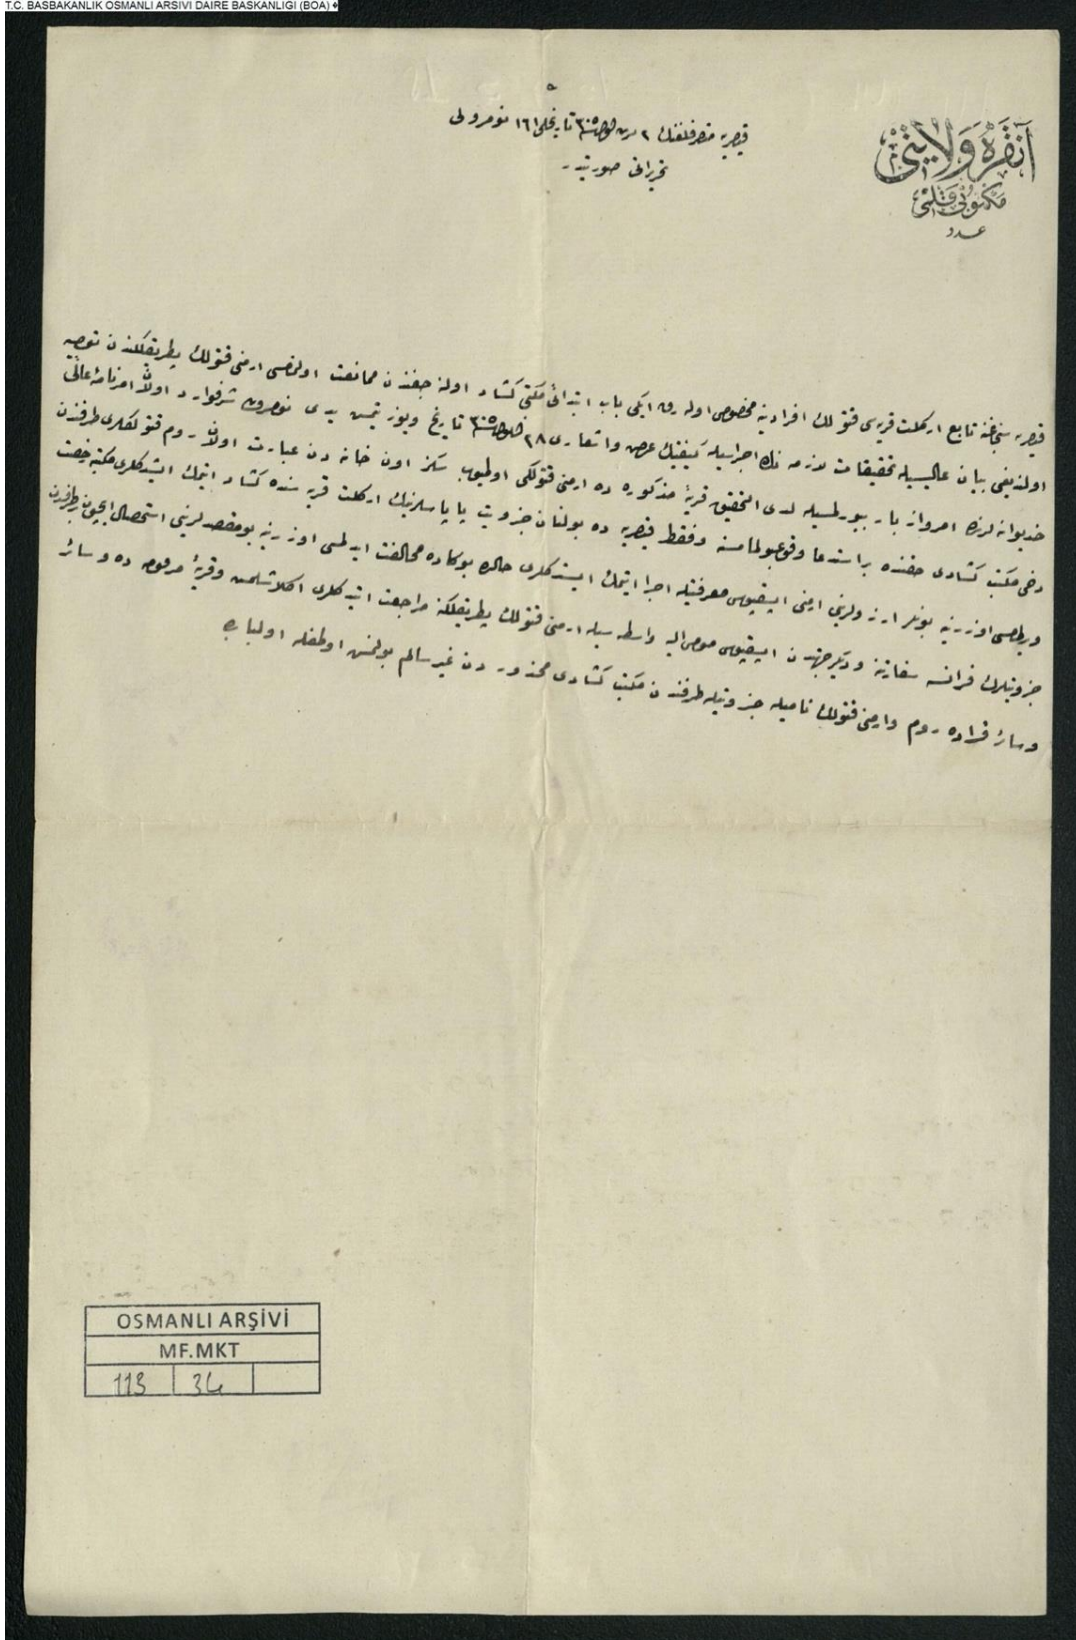 T.C. BASBAKANLIK OSMANLI ARSIVI DAIRE BASKANLIGI (BOA)
آنقره ولايتی
مكتوبی قلمی
عدد
قيصريه متصرفلغنك ٢ تاريخلی ١٦١ نومرولی
تحريراتی صورتيدر
قيصريه سنجاغنه تابع اركلت قريه‌سی قتولك افرادينه مخصوص اوله رق ايكی باب ابتدائی مكتبی كشاد اوله جغندن ممانعت اولنمامسی ارمنی قتولك پطريقلكندن توصيه
اولنديغی بيان عاليسيله تحقيقات لازمه نك اجراسيله كيفيتك عرض واشعاری ٢٨ تاريخ ويوز يتمش يدی نومرولی شرفوارد اولان امرنامه عالئ
خديوانه لرنده امر و اراده بيورلمسيله لدی التحقيق قريه مذكوره ده ارمنی قتولكی اولميوب سكز اون خانه دن عبارت اولان روم قتولكلری طرفندن
دخی مكتب كشادی حقنده بر استدعا وقوعبولمامسنه وفقط قيصريه ده بولنان جزويت پاپاسلرينك اركلت قريه سنده كشاد ايتمك ايستدكلری مكتبه رخصت
ويرلمسی اوزرينه بونلر ارزولرينی ارمنی ايسقپوسی معرفتيله اجرا ايتمك ايستدكلری حالده بوكا ده مخالفت ايدلمسی اوزرينه بو مقصدلرينی استحصال ايچون بر طرفدن
جزويتلرك فرانسه سفارتنه و ديكر جهتدن ايسقپوس مومی اليه واسطه سيله ارمنی قتولك پطريقلكنه مراجعت ايتدكلری اكلاشلمش وقريه مرقومه ده وسائر
وسائر قراده روم وارمنی قتولك ناميله جزويتلر طرفندن مكتب كشادی محذوردن غير سالم بولنمش اولمغله اولبابده
OSMANLI ARŞİVİ
MF.MKT
113 34